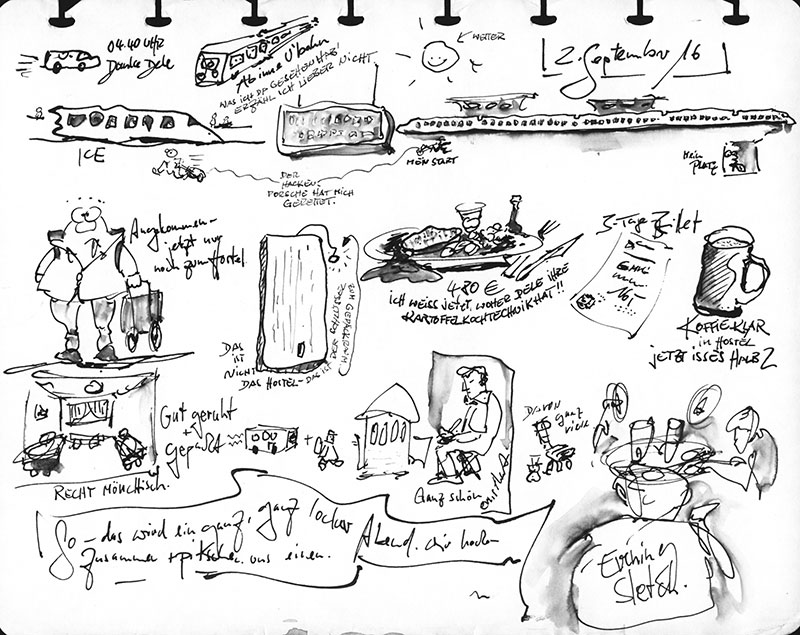 04.40 UHR
Danke Dele
Ab ins U'bahn
WAS ICH DA GESEHEN HAB!
ERZÄHL ICH LIEBER NICHT
WETTER
2. September 16
ICE
DER
HACKEN-
PORSCHE HAT MICH
GERETTET.
MEIN START
Mein
PLATZ
Angekommen-
jetzt nur
noch zum Hostel
DAS
IST
NICHT
DAS HOSTEL - DAS IST DER SCHLÜSSEL
ZUM GEPÄCKRAUM
4.80 €
ICH WEISS JETZT, WOHER DELE IHRE
KARTOFFELKOCHTECHNIK HAT!!
3-Tage Ticket
16,-
KOFFIE KLAR
in HOSTEL
JETZT ISSES HALB 2
RECHT MÖNCHISCH.
Gut geruht
+
+
Ganz schön
DAVON
ganz
viele
So - das wird ein ganz, ganz locker Abend. wir hocken
zusammen + pitschen uns einen.
Evening
Sketch.